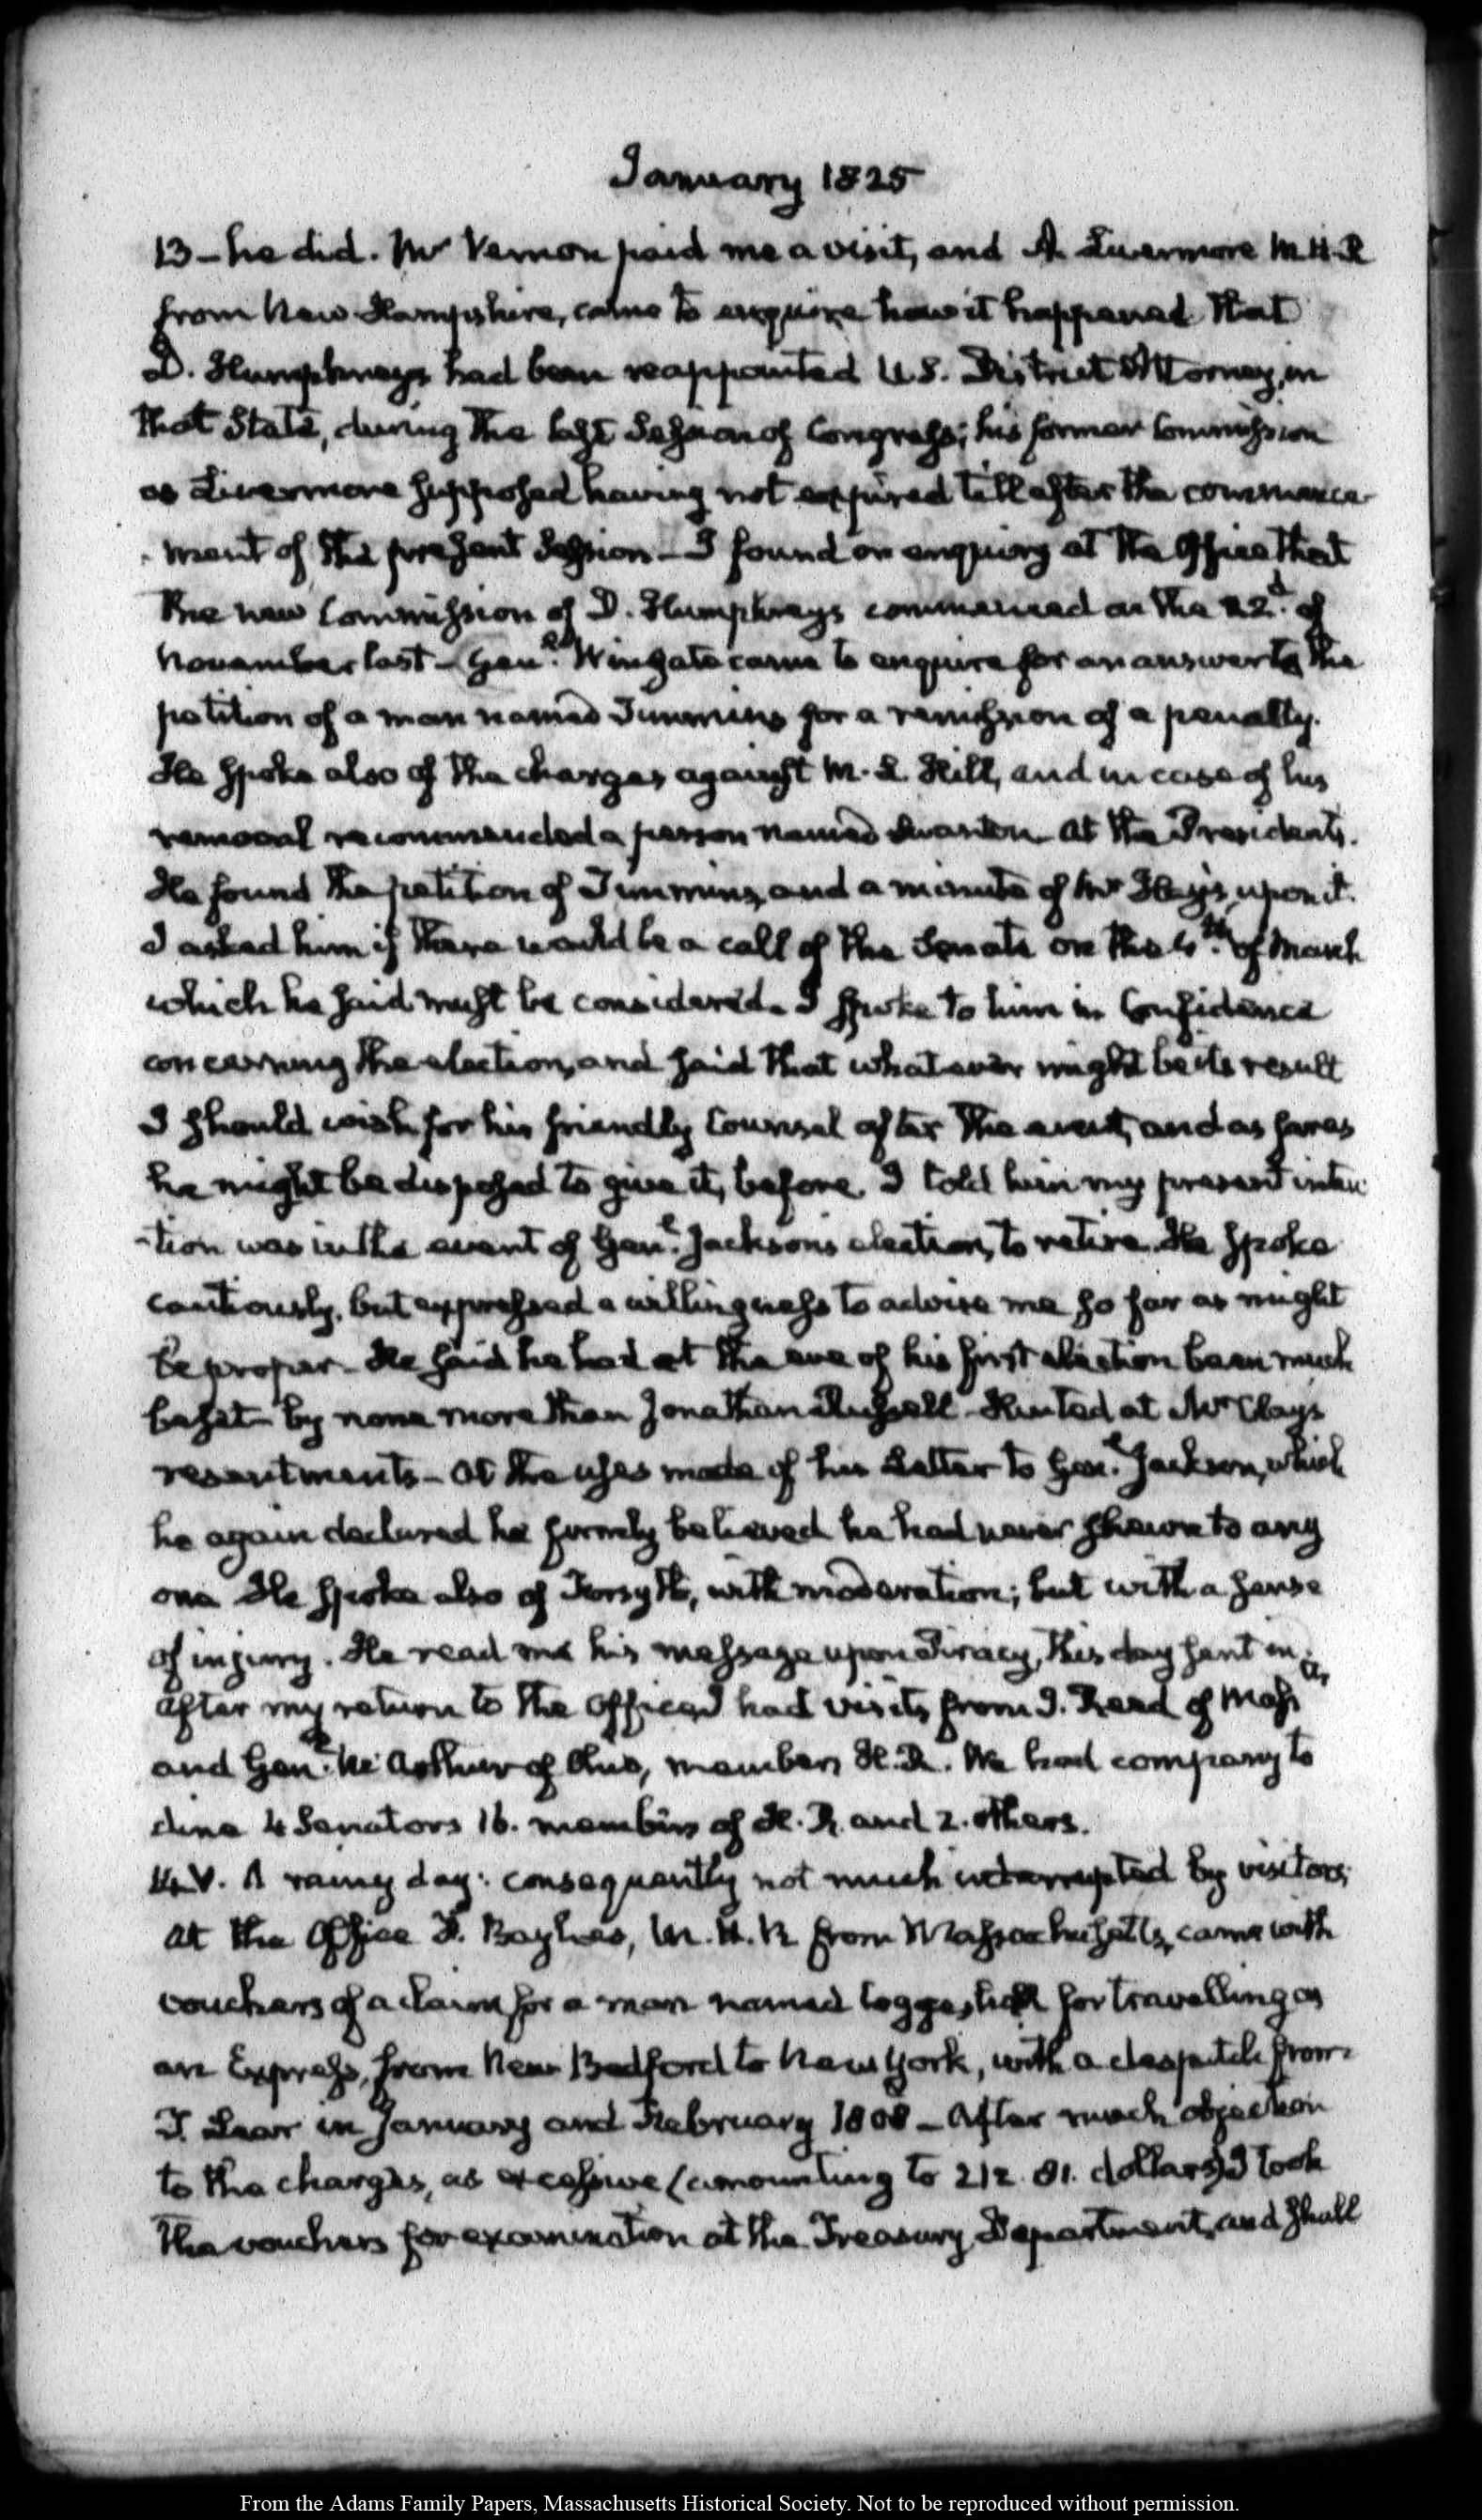 January 1825
13 — he did. Mr Vernon paid me a visit, and A. Livermore M.H.R
from New-Hampshire, came to enquire how it happened that
D. Humphreys had been reappointed U.S. District Attorney, in
that State, during the last Session of Congress; his former Commission
as Livermore supposed having not expired till after the commence-
ment of the present Session — I found on enquiry at the Office that
the new Commission of D. Humphreys commenced on the 22d. of
November last — Genl. Wingate came to enquire for an answer to the
petition of a man named Timmins for a remission of a penalty.
He spoke also of the charges against M. L. Hill, and in case of his
removal recommended a person named at the Presidents.
He found the petition of Timmins, and a minute of Mr Hay's, upon it.
I asked him if there would be a call of the Senate on the 4th. of March
which he said must be considered. I spoke to him in Confidence
concerning the election, and said that whatever might be its result
I should wish for his friendly Counsel after the event, and as far as
he might be disposed to give it, before. I told him my present inten
-tion was in the event of Genl. Jacksons election, to retire. He spoke
cautiously, but expressed a willingness to advise me so far as might
be proper — He said he had at the eve of his first election been much
beset — by none more than Jonathan Russell — Hinted at Mr Clays
resentments — at the uses made of his Letter to Genl. Jackson, which
he again declared he firmly believed he had never shewn to any
one He spoke also of Forsyth, with moderation; but with a sense
of injury. He read me his message upon Piracy, this day sent in.
After my return to the Office I had visits from J. Reed of Massts.
and Genl. McArthur of Ohio, members H.R. We had company to
dine 4 Senators 16. members of H.R. and 2. others.
14. V. A rainy day: consequently not much interrupted by visitors
at the Office F. Baylies, M.H.R from Massachusetts, came with
vouchers of a claim for a man named Coggeshall for travelling as
an Express, from New Bedford to New York, with a despatch from
T. Lear in January and February 1808 — After much objection
to the charges, as excessive (amounting to 212. 81. dollars) I took
the vouchers for examination at the Treasury Department, and shall
From the Adams Family Papers, Massachusetts Historical Society. Not to be reproduced without permission.